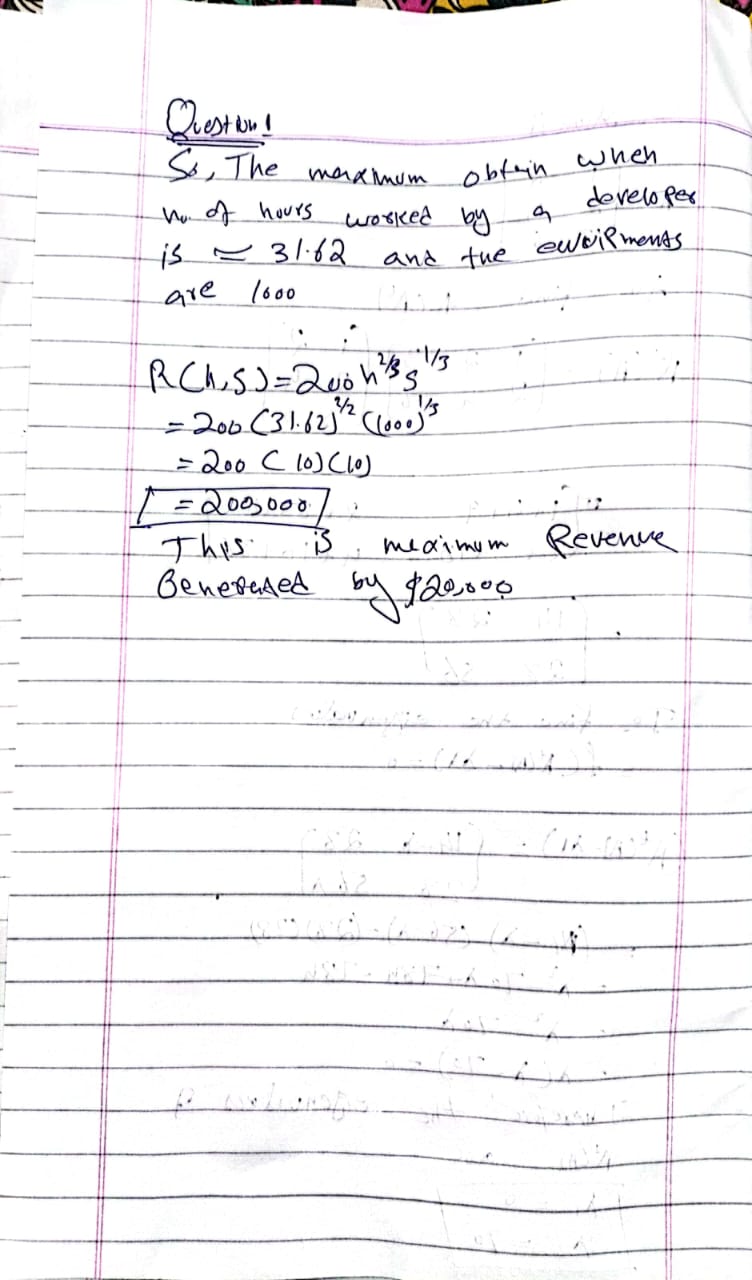 Question 1
So, The maximum obtain when
no. of hours worked by a developer
is = 31.62 and the ewuipments
are 1000
R(h,s)=200h^2/3 s^1/3
=200 (31.62)^2/2 (1000)^1/3
=200 (10)(10)
=200,000
This is meximum Revenue
Generated by $20,000